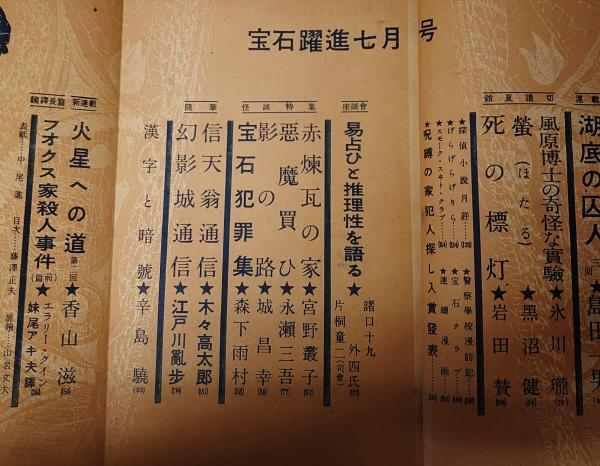 宝石躍進七月号
連載
湖底の囚人
島田一男
錯夏讀切
風原博士の奇怪な實驗★氷川瓏
螢(ほたる)★黒沼健
死の標灯★岩田賛
★探偵小説月評
★げらげらげりら
★スモーク・スキート・クラブ
★警察學校漫訪記
★宝石クラブ
★連續漫画
★呪縛の家犯人探し入賞發表
座談會
易占ひと推理性を語る★
諸口十九
外四氏
片桐童二(司會)
怪談特集
赤煉瓦の家★宮野叢子
惡魔買ひ★永瀬三吾
影の路★城昌幸
宝石犯罪集★森下雨村
隨筆
信天翁通信★木々高太郎
幻影城通信★江戸川亂歩
漢字と暗號★辛島驍
新連載
火星への道 第一回★香山滋
飜譯長篇
フオクス家殺人事件(前篇)★エラリー・クイン
妹尾アキ夫譯
表紙…中尾進 目次…藤澤正夫 扉繪…山名文夫